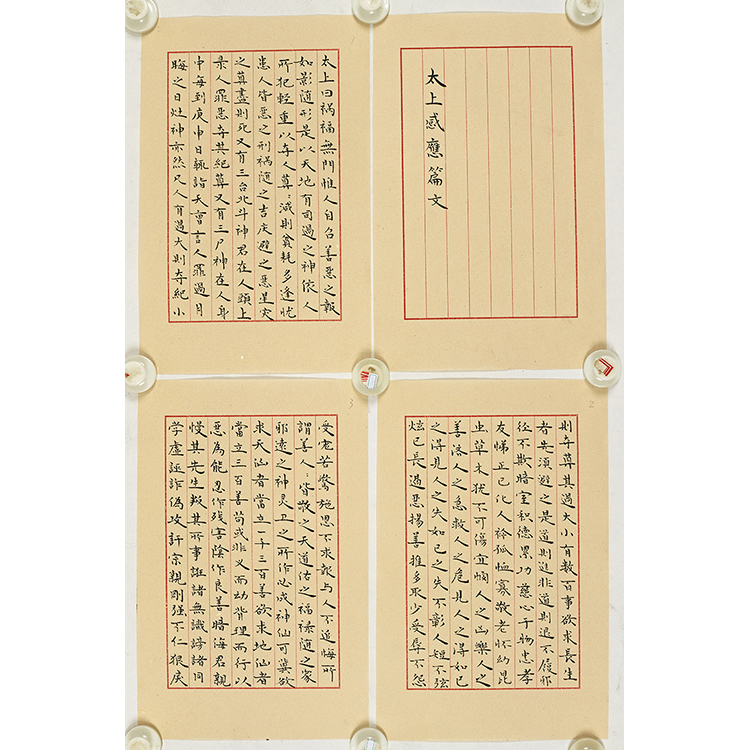 太上感應篇文
太上曰祸福無門惟人自召善恶之報
如影随形是以天地有司過之神依人
所犯輕重以夺人算:减則貧耗多逢忧
患人皆恶之刑祸随之吉庆避之恶星灾
之算盡則死又有三台北斗神君在人頭上
录人罪恶夺其纪算又有三尸神在人身
中每到庚申日辄詣天曹言人罪過月
晦之日灶神亦然凡人有過大則夺紀小
2
則夺算其過大小有数百事欲求長生
者先須避之是道則進非道則退不履邪
径不欺暗室积德累功慈心于物忠孝
友悌正己化人矜孤恤寡敬老怀幼昆
虫草木犹不可傷宜悯人之凶樂人之
善济人之急救人之危見人之得如己
之得見人之失如己之失不彰人短不弦
炫己長遏恶揚善推多取少受辱不怨
3
受宠若驚施恩不求報与人不追悔所
謂善人:皆敬之天道佑之福禄随之众
邪遠之神灵卫之所作必成神仙可冀欲
求天仙者當立一千三百善欲求地仙者
當立三百善苟或非义而动背理而行以
恶為能忍作残害陰作良善暗侮君親
慢其先生叛其所事誑諸無識謗諸同
学虚诬詐偽攻訐宗親剛强不仁狠戾